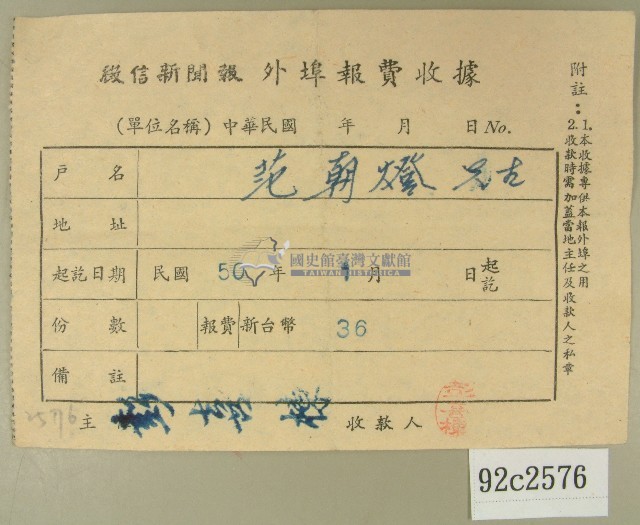 徵信新聞報 外埠報費收據
(單位名稱) 中華民國 年 月 日 No.
戶名 范朝燈
地址
起訖日期 民國 50 年 1 月 日 起訖
份數 報費 新台幣 36
備註
主 收款人
附註：
1.本收據專供本報外埠之用
2.收款時需加蓋當地主任及收款人之私章
國史館臺灣文獻館
TAIWAN HISTORICA
2576
92c2576